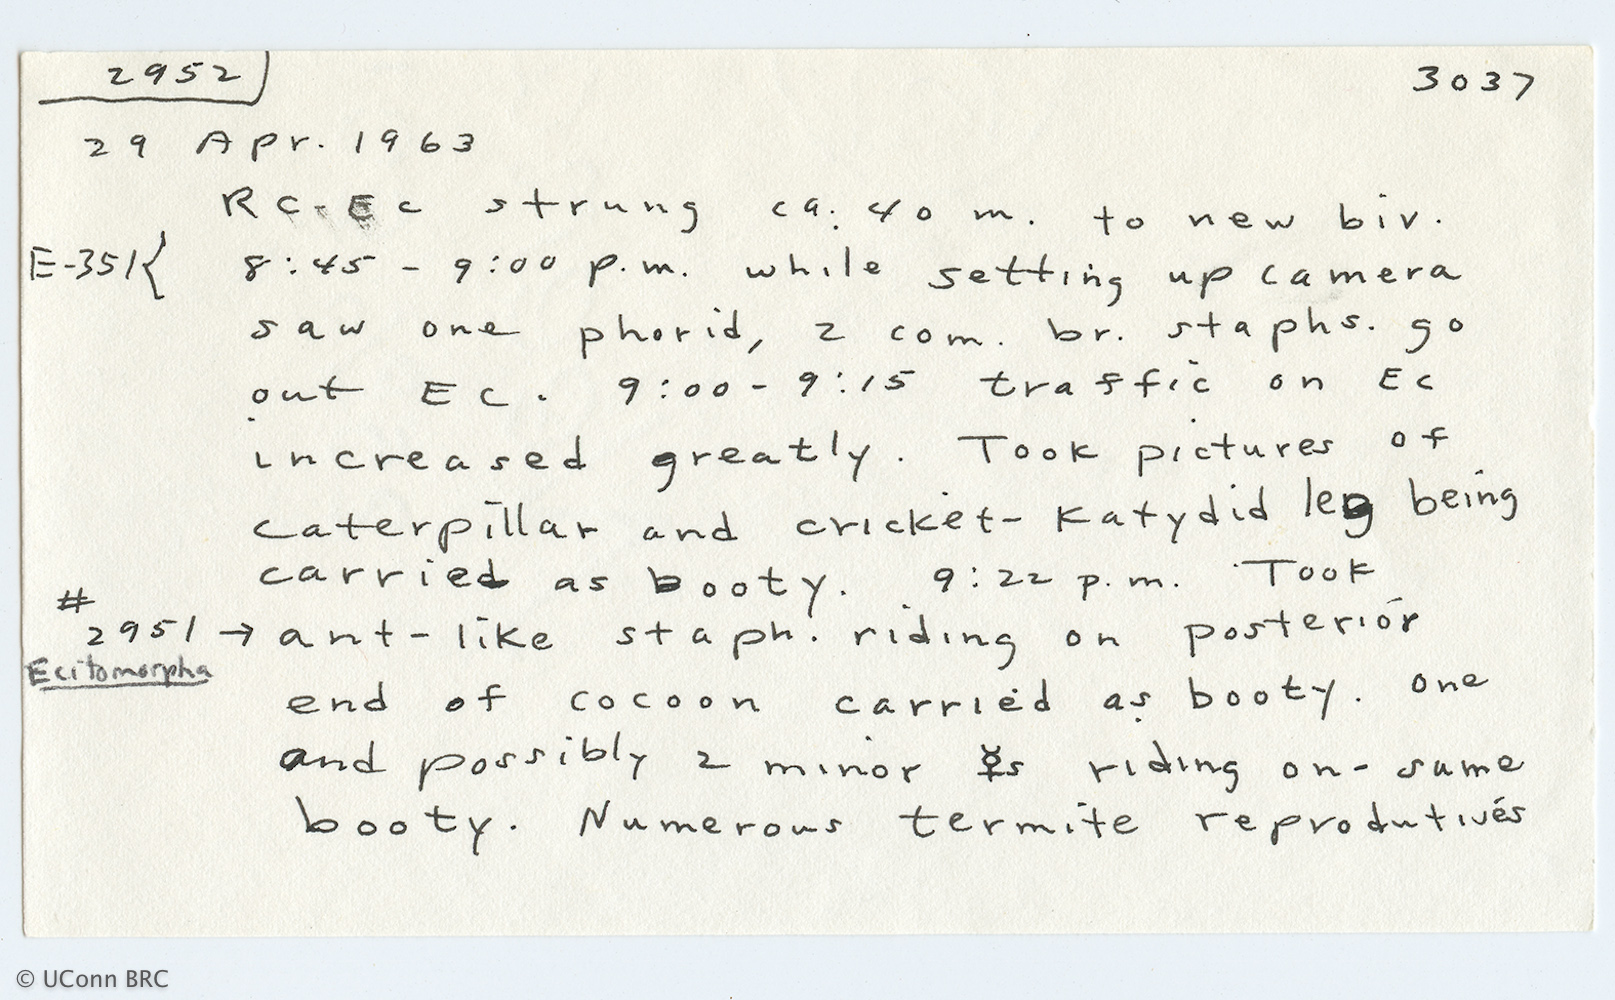 2952
3037
29 Apr. 1963
Rc-Ec strung ca. 40 m. to new biv.
E-351{ 8:45 - 9:00 p.m. while setting up camera
saw one phorid, 2 com. br. staphs. go
out Ec. 9:00 - 9:15 traffic on Ec
increased greatly. Took pictures of
caterpillar and cricket-katydid leg being
carried as booty. 9:22 p.m. Took
#
2951 → ant-like staph. riding on posterior
Ecitomorpha
end of cocoon carried as booty. One
and possibly 2 minor ☿s riding on-same
booty. Numerous termite reprodutives
© UConn BRC